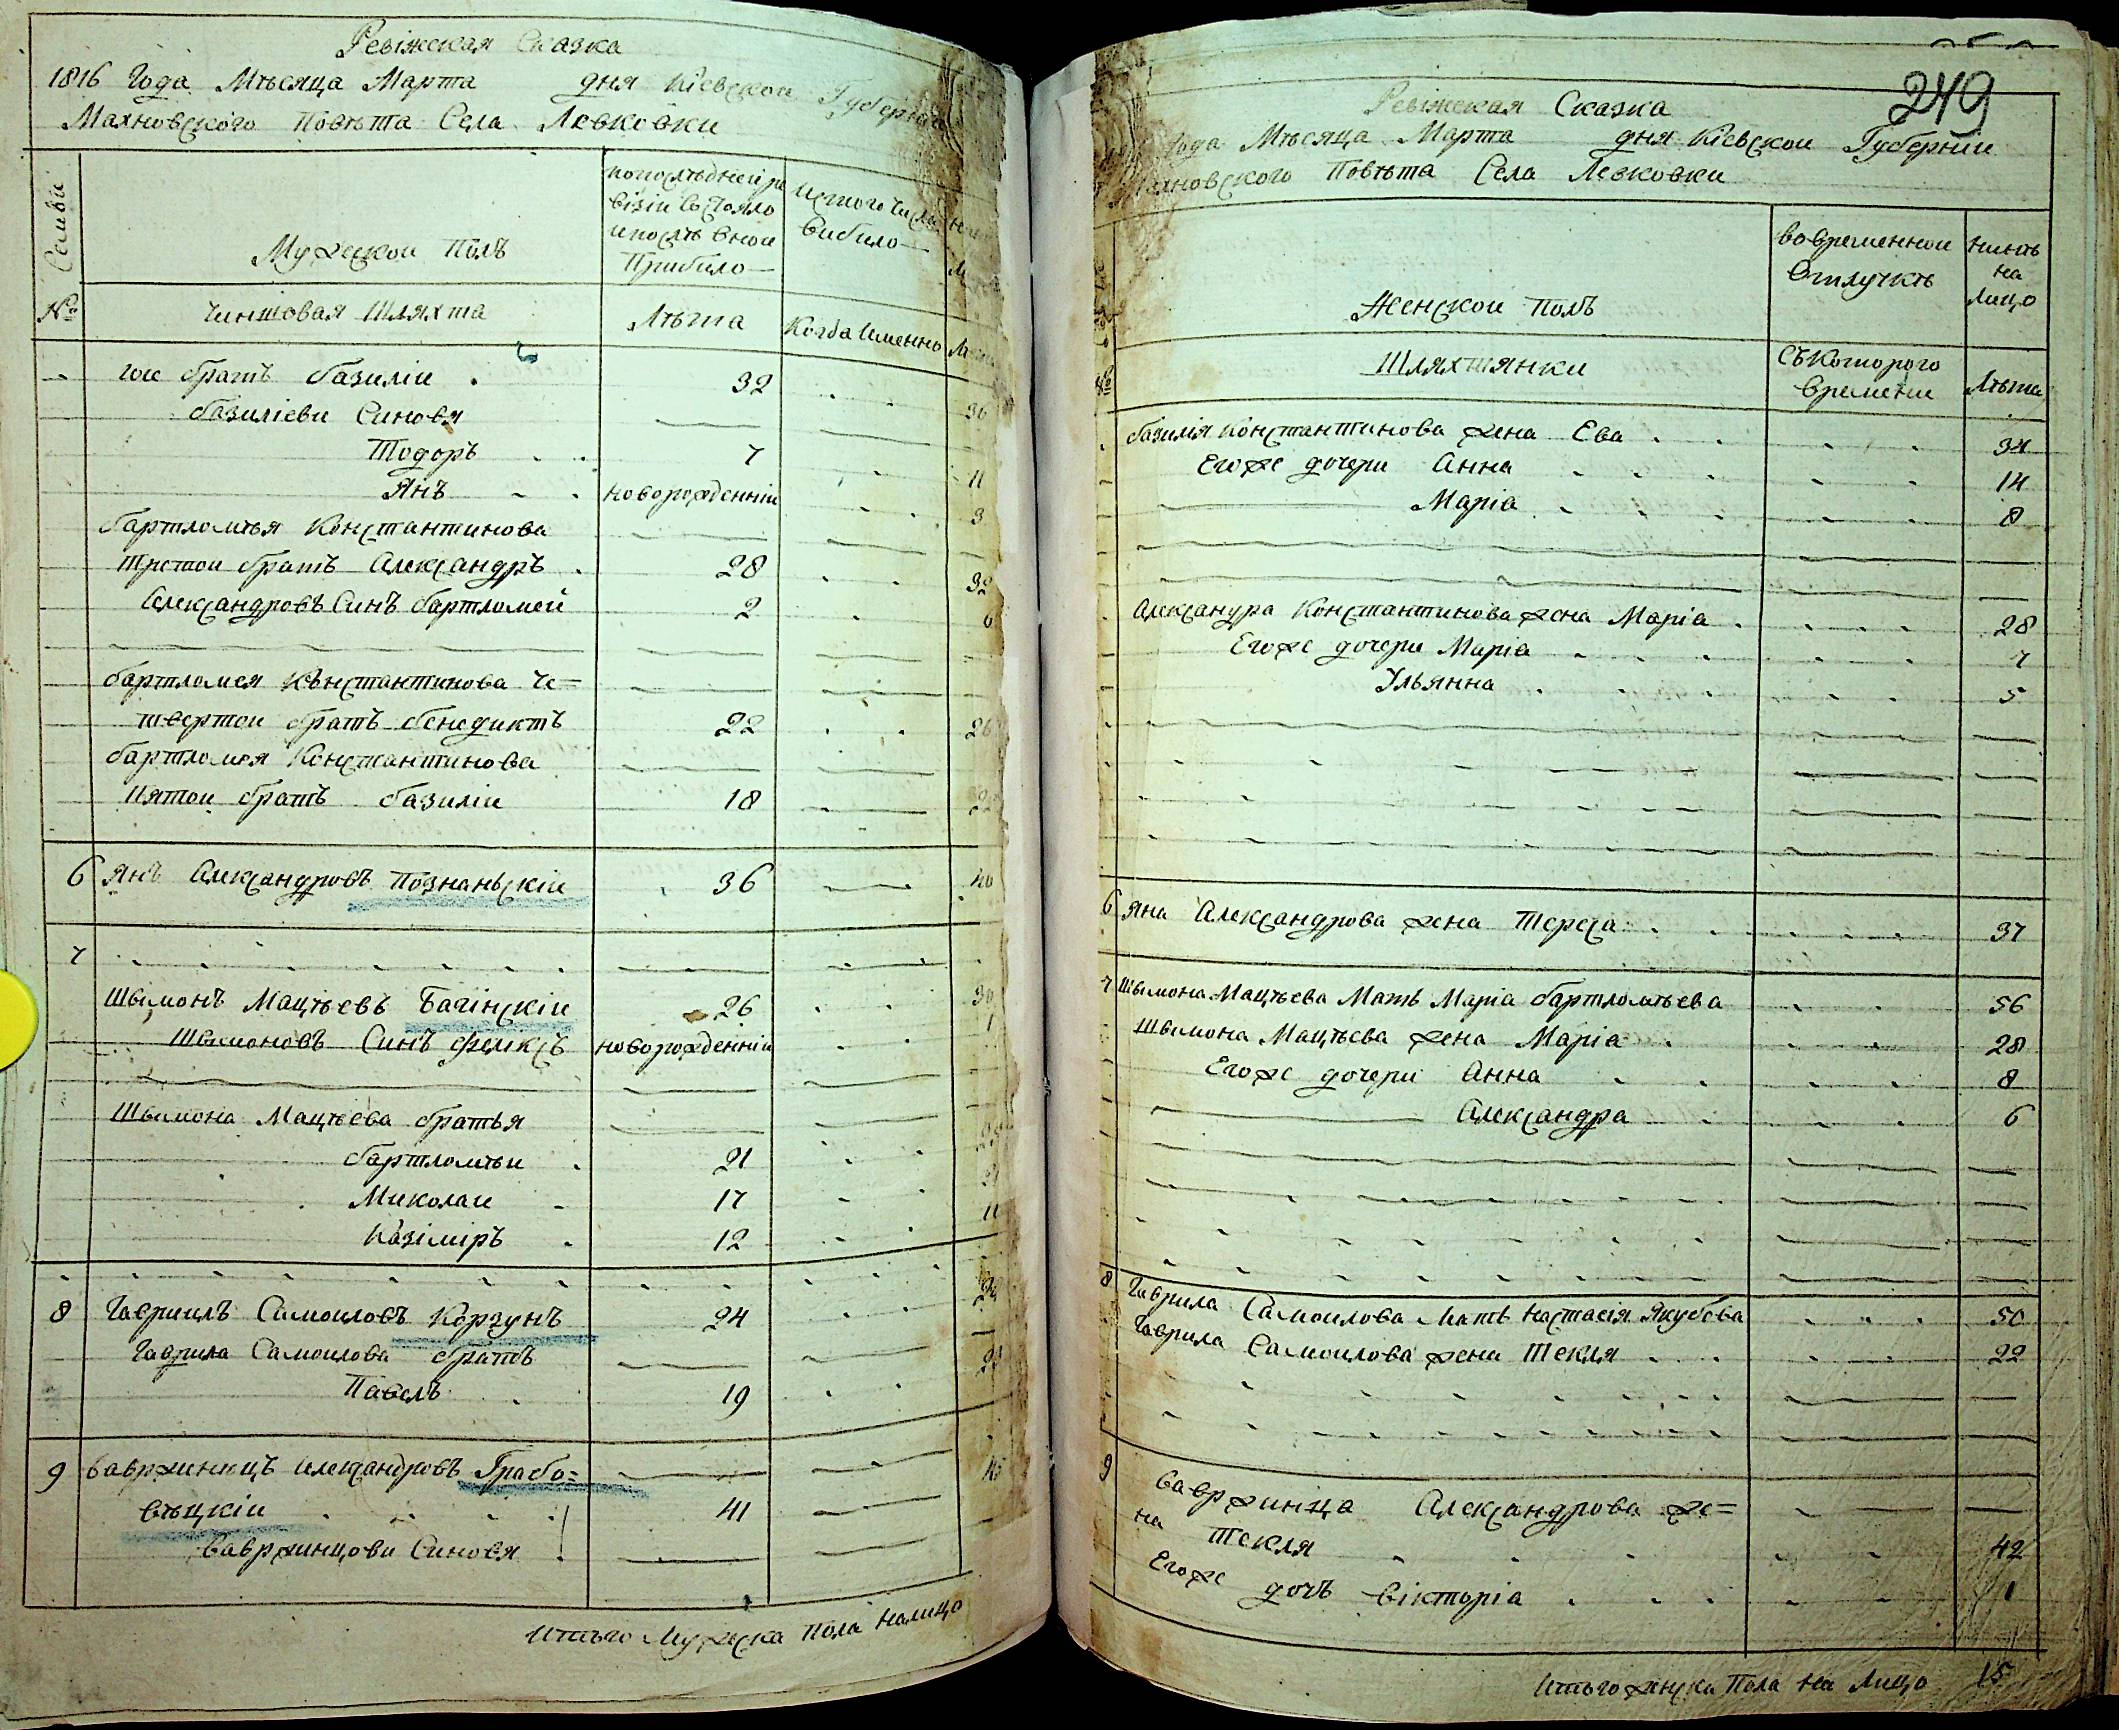 Ревіжская Сказка
1816 Года Мѣсяца Марта дня Кіевской Губерніи
Махновского Повѣта Села Левковки
Семьи
№
Мужеской Полъ
Чиншовая Шляхта
попослѣдней ре
візіи Состояло
ипослѣ оной
Прибило
Лѣта
Истого Числа
Вибило
Когда Именно
гои братъ базиліи . 32 . . 36
базиліеви Синовя
Тодоръ . . 7 . . 11
Янъ . . новорожденніи . . 3
бартломѣя Константинова
третои братъ Александръ . 28 . . 32
Александровъ Синъ бартломей 2 . 6
бартломея Константинова че=
твертои братъ бенедиктъ 22 . . 26
бартломея Константинова
пятои братъ базиліи 18 22
6 Янъ Александровъ Познаньскіи 36 40
7
Шьімонъ Мацѣевъ Багінскіи 26 . . 30
Шьімоновъ Синъ Феликсъ новорожденніи . .
Шьімона Мацѣева братья
бартломѣи . 21 . .
Миколаи 17 . . 21
Казіміръ . 12 . .
8 Гавриилъ Самоиловъ Корзунъ 24 . .
Гаврила Самоилова братъ
Павелъ . 19 . .
9 Вавржинецъ Александровъ Грабо=
вѣцкіи . . . . 41 45
Вавржинцови Синовя
Итого Мужеска Пола Налицо
249
Ревіжская Сказка
Года Мѣсяца Марта дня Кіевской Губерніи
Махновского Повѣта Села Левковки
№
Женской Полъ
Шляхтянки
во временной
Отлучкѣ
Съ Которого
Времени
нинѣ
на
Лицо
Лѣта
базилія Константинова жена Ева . . . . 34
Егоже дочери Анна . . . . 14
Маріа . . . . 8
Александра Константинова жена Маріа . . . . 28
Егоже дочери Маріа . . . . 7
Ульянна . . . . 5
6 Яна Александрова жена Тереса . . . . 37
7 Шьімона Мацѣева Мать Маріа бартломѣева . . 56
Шьімона Мацѣева жена Маріа . . . 28
Егоже дочери Анна . . . . 8
Александра . . . 6
8 Гаврила Самоилова Мать Настасія Якубова . . . 50
Гаврила Самоилова жена Текля . . . . 22
9 Вавржинца Александрова же=
на Текля . . . . . 42
Егоже дочъ Вікторіа . . . . . . 1
Итого женска Пола На Лицо 15